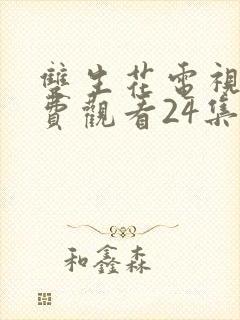 雙生花電視
費觀看24集
和鑫森